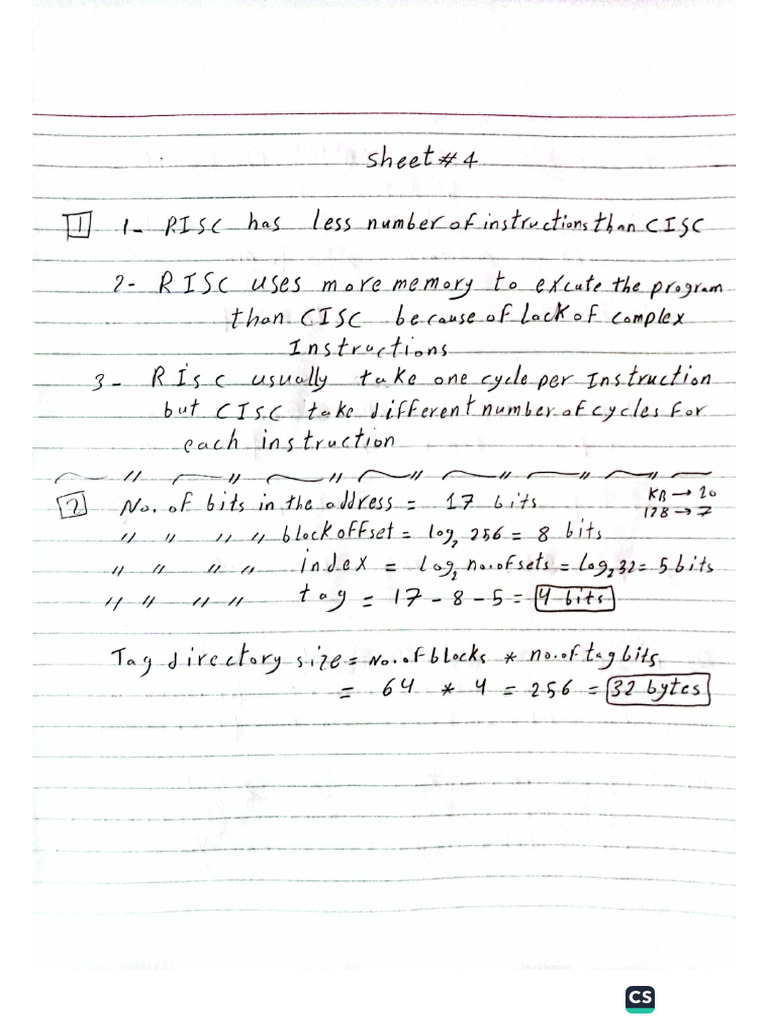 Sheet # 4
1 1- RISC has less number of instructions than CISC
2- RISC uses more memory to excute the program
than CISC because of lack of complex
Instructions
3- RISC usually take one cycle per Instruction
but CISC take different number of cycles for
each instruction
2 No. of bits in the address = 17 bits
KB → 10
128 → 7
" " " " block offset = log₂ 256 = 8 bits
" " " " index = log₂ no. of sets = log₂ 32 = 5 bits
" " " " tag = 17 - 8 - 5 = 4 bits
Tag directory size = No. of blocks * no. of tag bits
= 64 * 4 = 256 = 32 bytes
CS